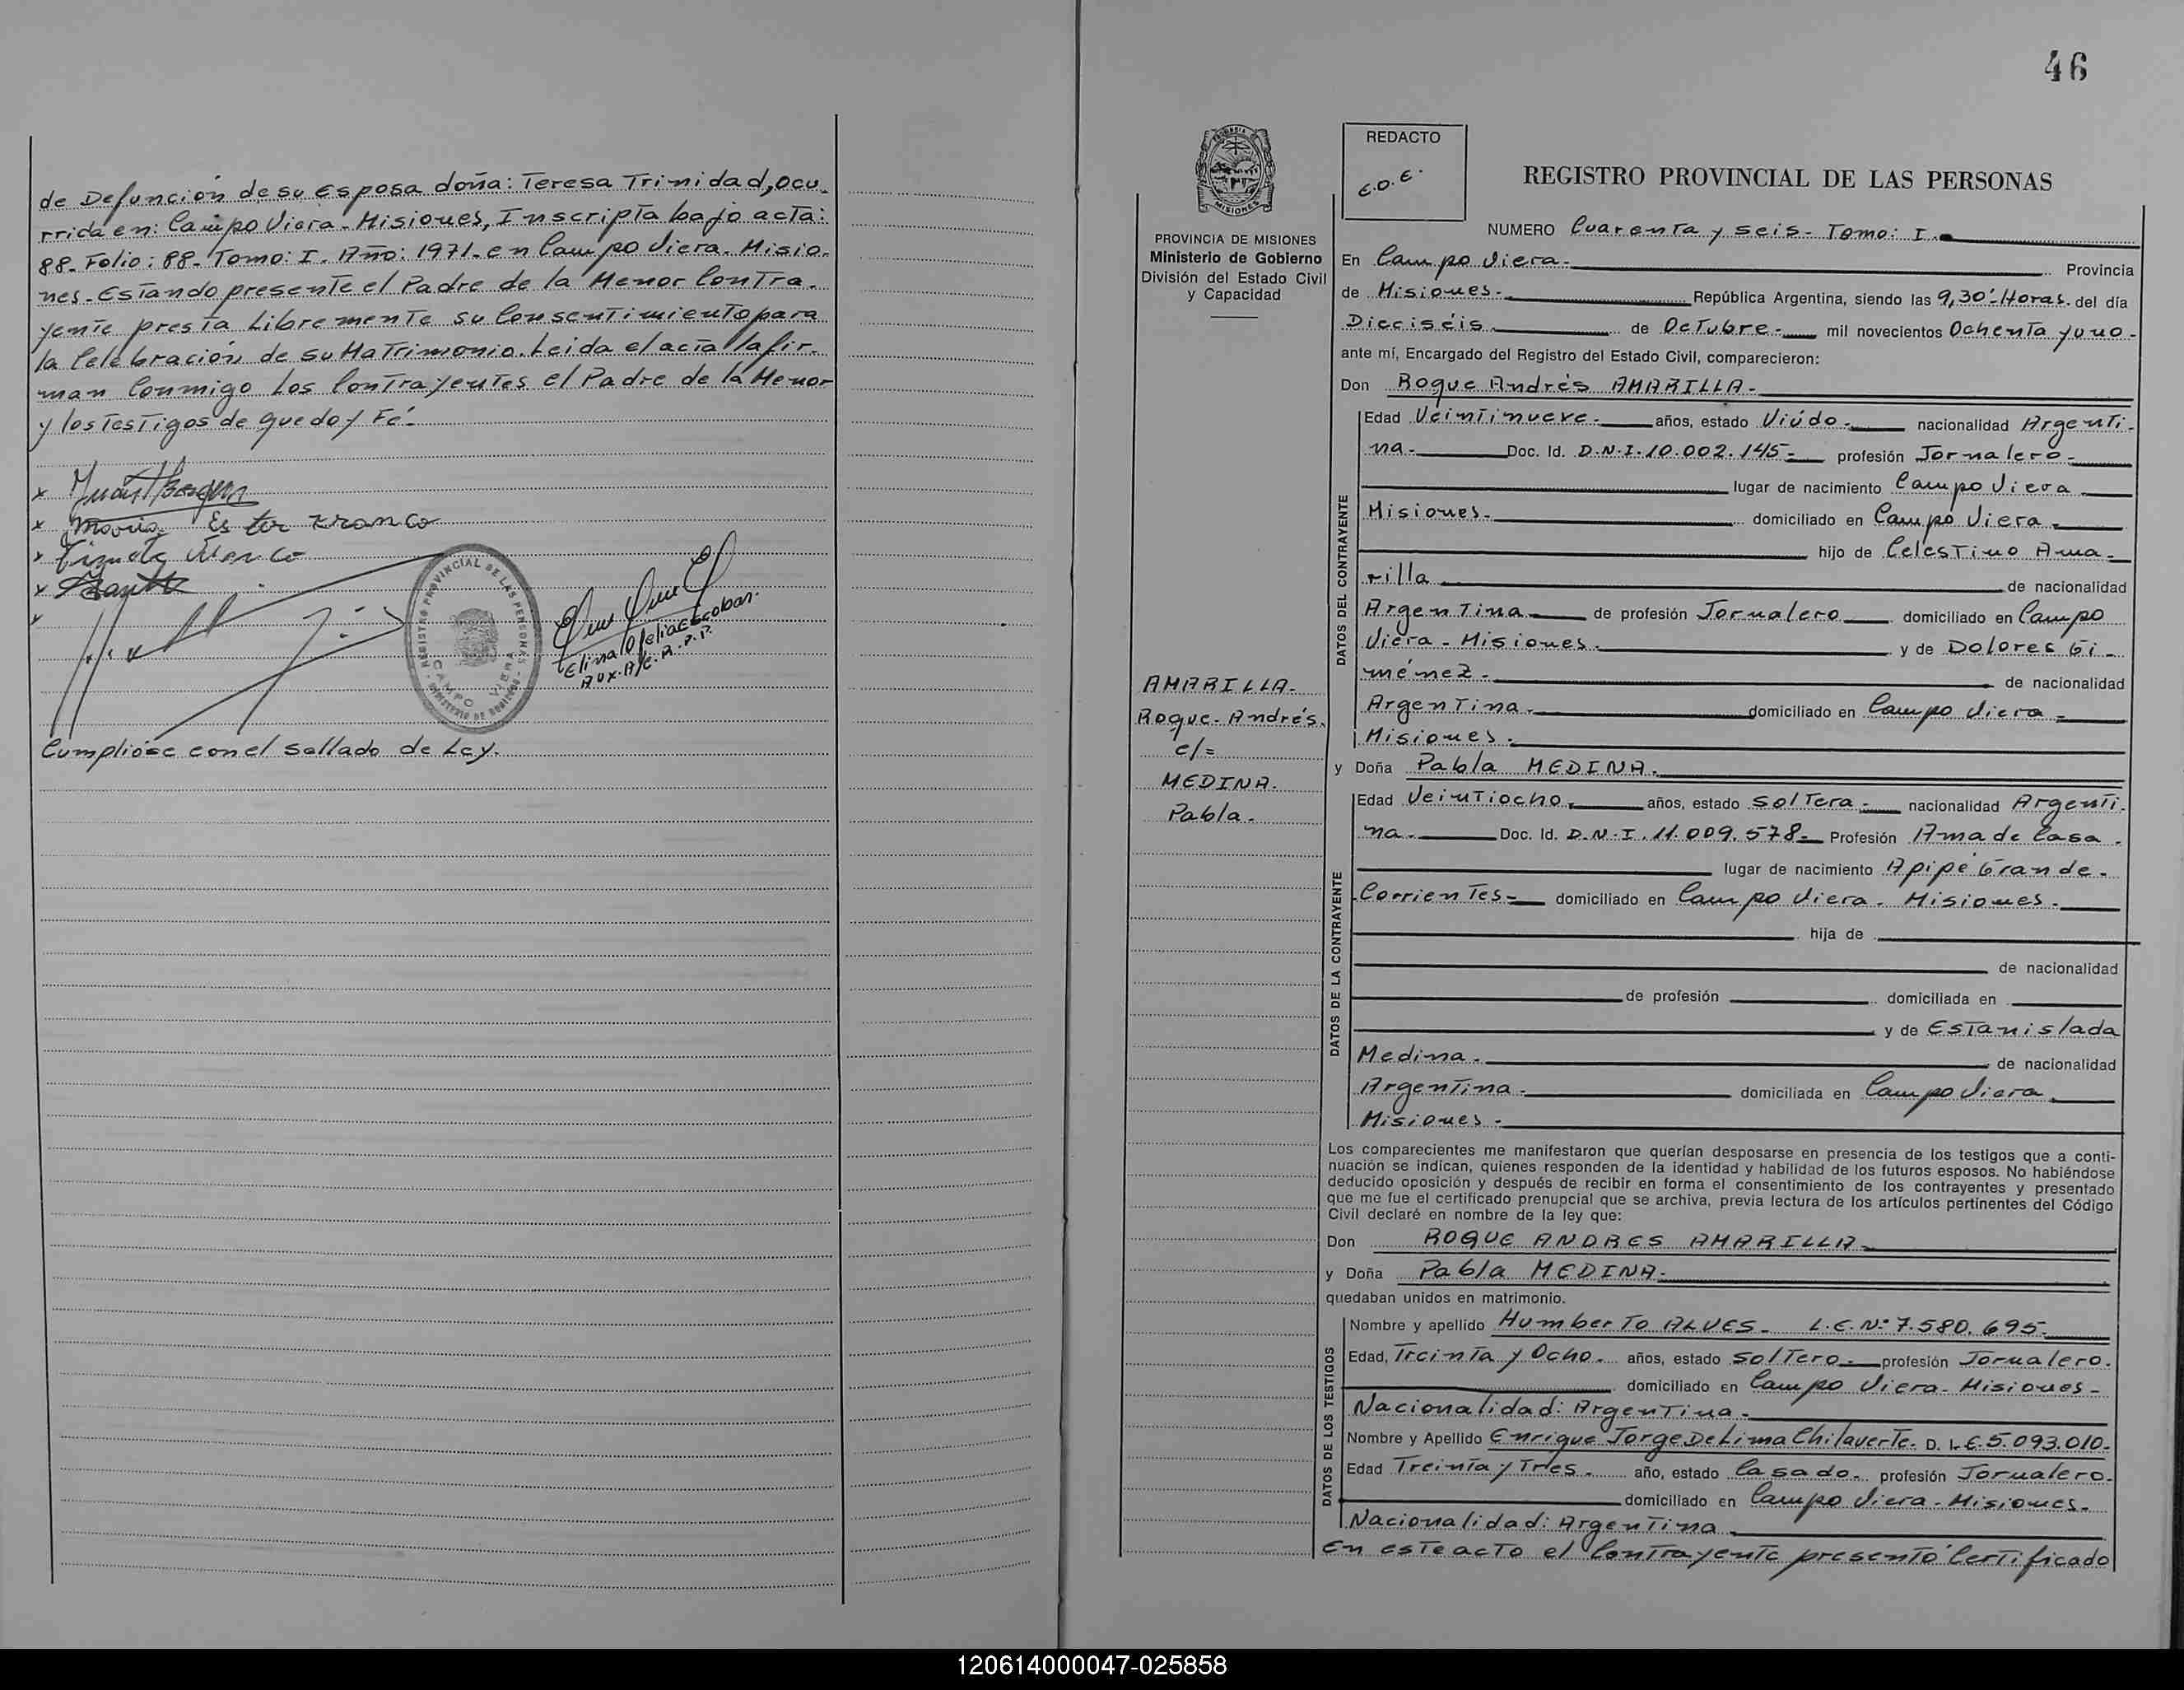 de Defunción de su Esposa doña: Teresa Trinidad, ocu-
rrida en: Campo Viera - Misiones, Inscripta bajo acta:
88. Folio: 88 - Tomo: I. Año: 1971. en Campo Viera. Misio-
nes. Estando presente el Padre de la Menor Contra-
yente presta Libremente su Consentimiento para
la Celebración de su Matrimonio. Leida el acta la fir-
man Conmigo Los Contrayentes el Padre de la Menor
y los Testigos de que doy Fé.
x
x Maria Ester Franco
x
x
x
REGISTRO PROVINCIAL DE LAS PERSONAS
CAMPO VIERA
MINISTERIO DE GOBIERNO
Elina Ofelia Escobar.
Aux. A/C. R.P.P.
Cumplióse con el Sellado de Ley.
46
PROVINCIA DE MISIONES
Ministerio de Gobierno
División del Estado Civil
y Capacidad
AMARILLA.
Roque - Andrés.
c/=
MEDINA.
Pabla.
REDACTO
E.O.E.
REGISTRO PROVINCIAL DE LAS PERSONAS
NUMERO Cuarenta y seis - Tomo: I.
En Campo Viera. Provincia
de Misiones. República Argentina, siendo las 9,30' Horas. del día
Dieciséis. de Octubre. mil novecientos Ochenta y uno -
ante mí, Encargado del Registro del Estado Civil, comparecieron:
Don Roque Andrés AMARILLA.
DATOS DEL CONTRAYENTE
Edad Veintinueve. años, estado Viúdo. nacionalidad Argenti-
na. Doc. Id. D.N.I. 10.002.145 - profesión Jornalero.
lugar de nacimiento Campo Viera
Misiones. domiciliado en Campo Viera
hijo de Celestino Ama-
rilla de nacionalidad
Argentina de profesión Jornalero domiciliado en Campo
Viera - Misiones. y de Dolores Gi-
ménez. de nacionalidad
Argentina. domiciliado en Campo Viera -
Misiones.
y Doña Pabla MEDINA.
DATOS DE LA CONTRAYENTE
Edad Veintiocho. años, estado Soltera. nacionalidad Argenti-
na. Doc. Id. D.N.I. 11.009.578 - Profesión Ama de Casa.
lugar de nacimiento Apipé Grande.
Corrientes - domiciliado en Campo Viera. Misiones.
hija de
de nacionalidad
de profesión domiciliada en
y de Estanislada
Medina. de nacionalidad
Argentina. domiciliada en Campo Viera
Misiones.
Los comparecientes me manifestaron que querían desposarse en presencia de los testigos que a conti-
nuación se indican, quienes responden de la identidad y habilidad de los futuros esposos. No habiéndose
deducido oposición y después de recibir en forma el consentimiento de los contrayentes y presentado
que me fue el certificado prenupcial que se archiva, previa lectura de los artículos pertinentes del Código
Civil declaré en nombre de la ley que:
Don ROQUE ANDRES AMARILLA
y Doña Pabla MEDINA.
quedaban unidos en matrimonio.
DATOS DE LOS TESTIGOS
Nombre y apellido Humberto ALVES - L.E. Nº 7.580.695.
Edad, Treinta y Ocho. años, estado Soltero. profesión Jornalero.
domiciliado en Campo Viera - Misiones -
Nacionalidad: Argentina.
Nombre y Apellido Enrique Jorge De Lima Chilaverte. D. L.E. 5.093.010.
Edad Treinta y Tres. año, estado Casado. profesión Jornalero.
domiciliado en Campo Viera. Misiones.
Nacionalidad: Argentina
En este acto el Contrayente presentó Certificado
120614000047-025858